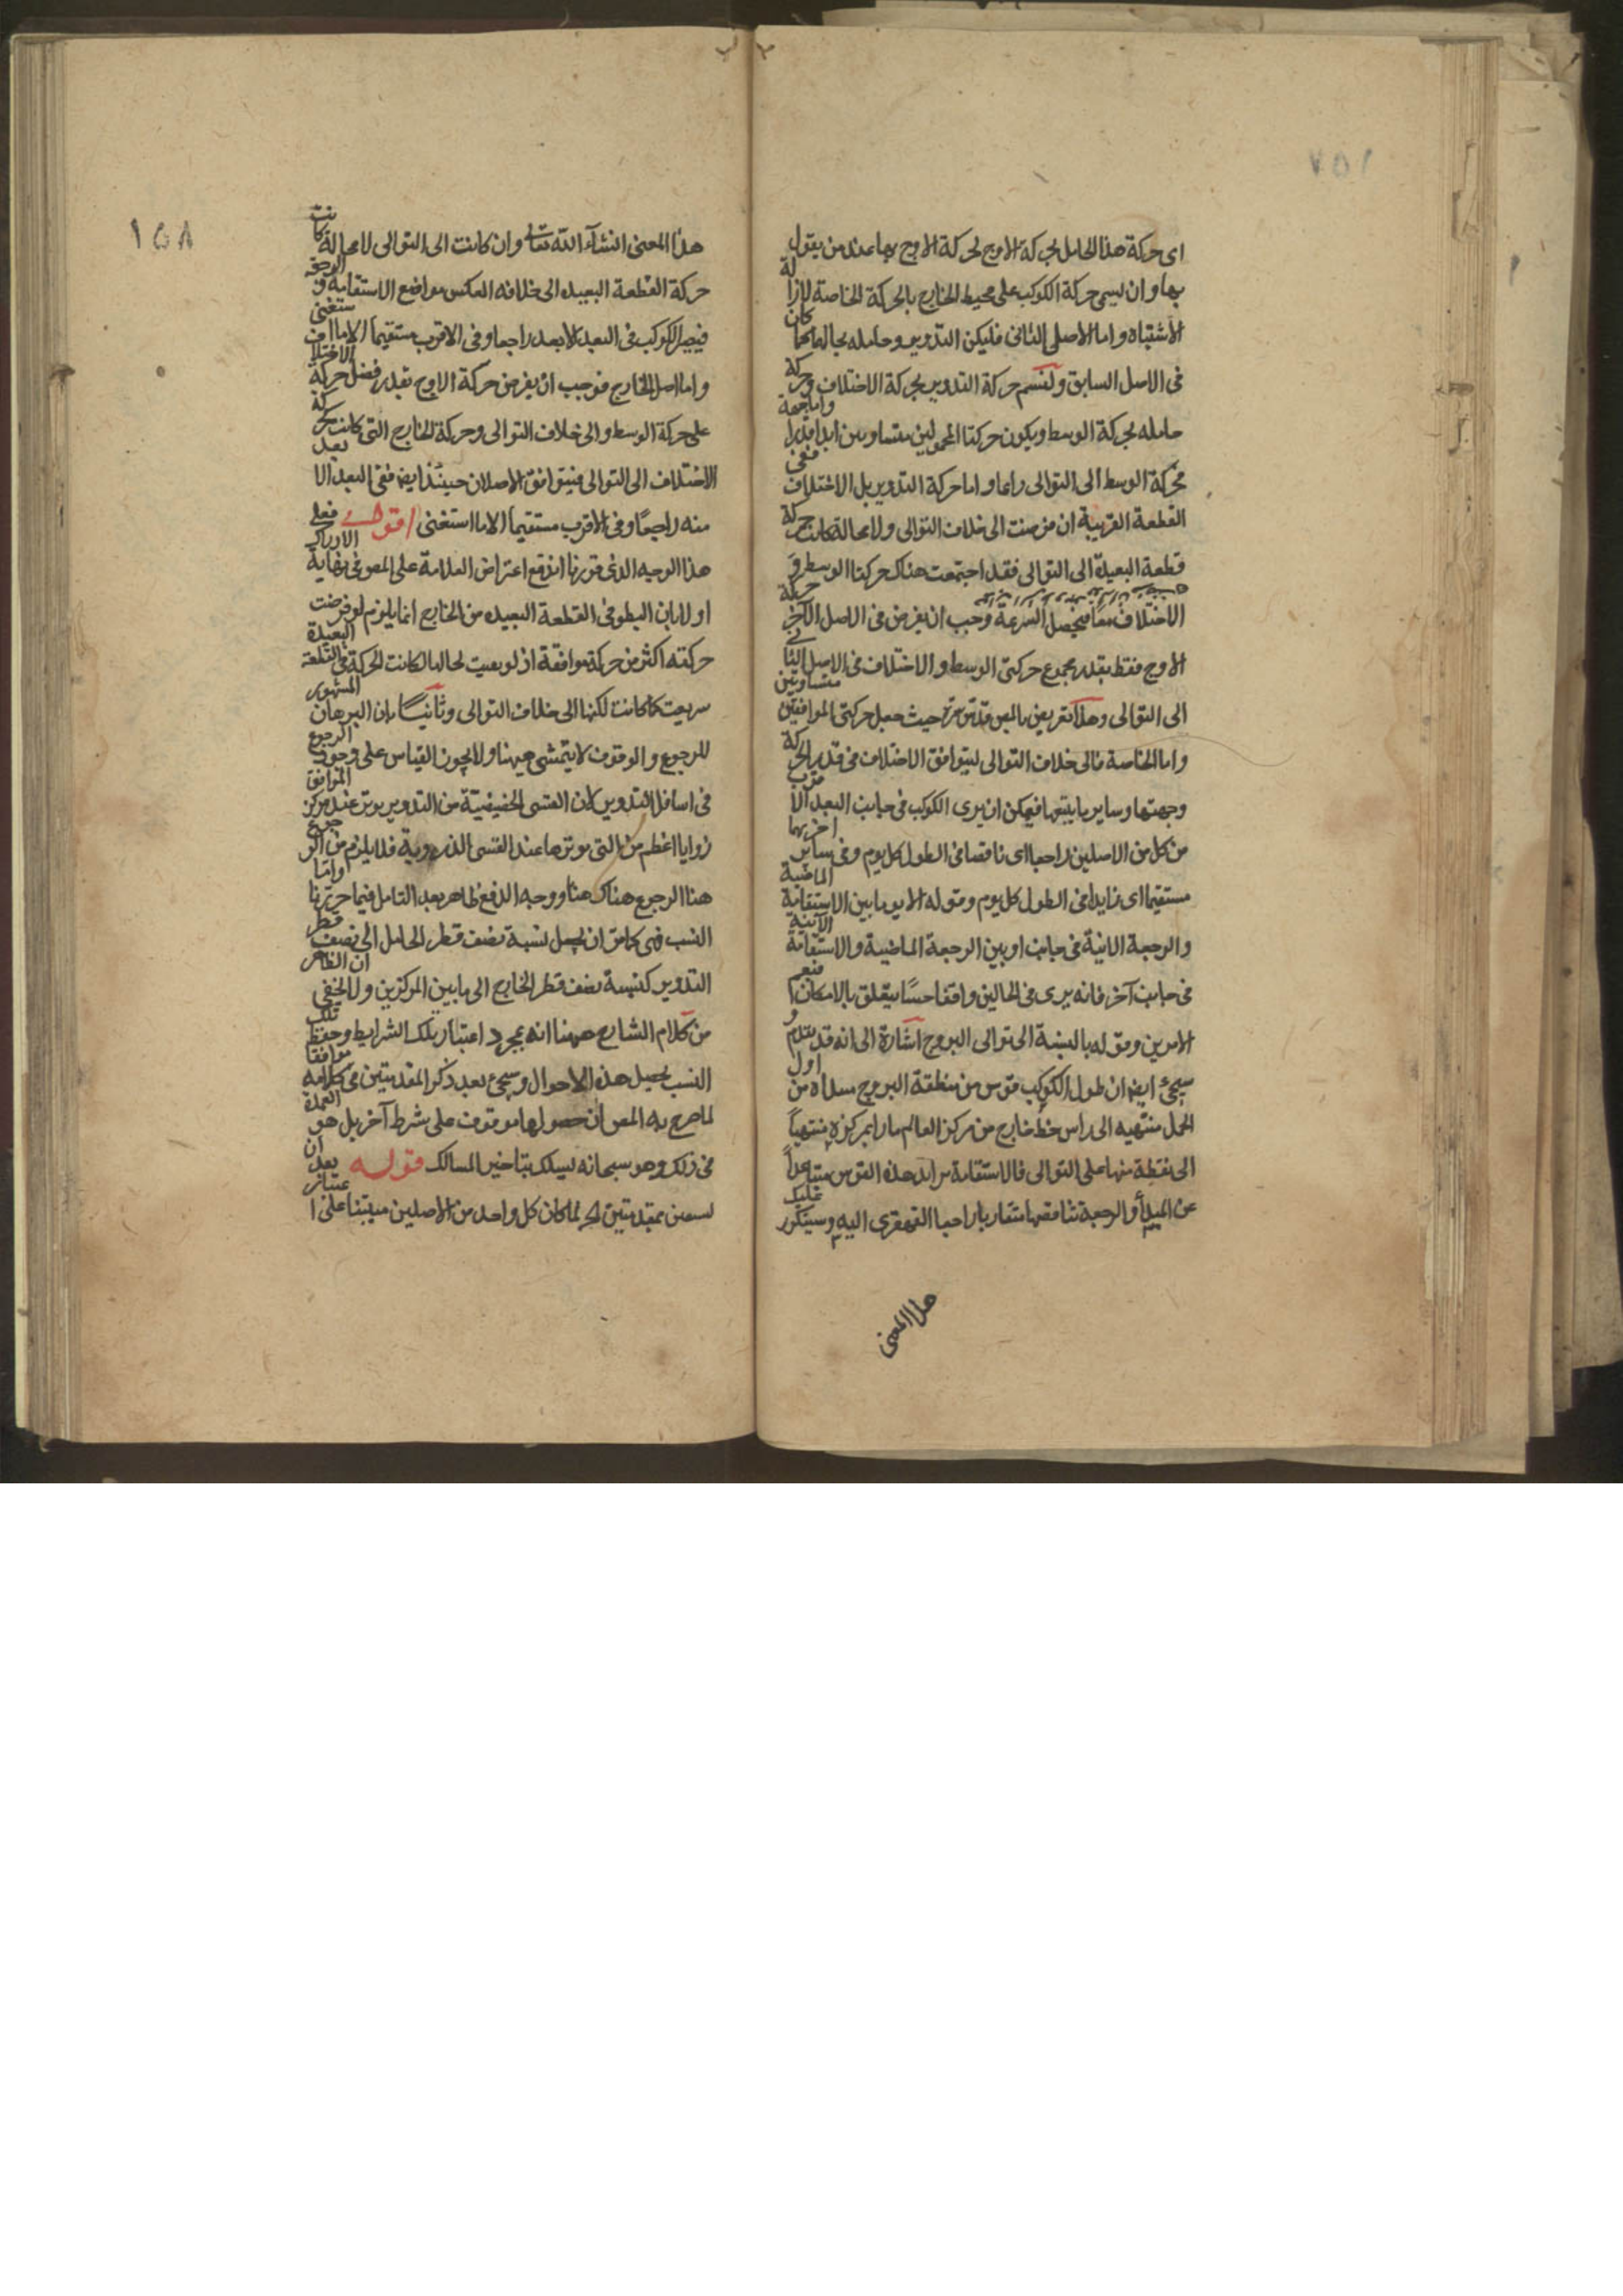 اى حركة هذا الحامل بحركة الاوج لحركة الاوج بها عند من يقول
بها وان يسمى حركة الكوكب على محيط الخارج بالحركة الخاصة لازالة
الاشتباه واما الاصل الثانى فليكن التدوير وحامله بحالهما كما كان
فى الاصل السابق ولنسم حركة التدوير بحركة الاختلاف وحركة
حامله بحركة الوسط ويكون حركتا المحمولين متساويين ابدا قدرا واما جهة
فحركة الوسط الى التوالى دايما واما حركة التدوير بل الاختلاف ففى
القطعة القريبة ان فرضت الى خلاف التوالى ولا محالة كانت حركة
قطعة البعيدة الى التوالى فقد اجتمعت هناك حركتا الوسط و
الاختلاف معا فيحصل السرعة وجب ان يفرض فى الاصل الآخر حركة
الاوج فقط بقدر مجموع حركتى الوسط والاختلاف فى الاصل الثانى
الى التوالى وهذا تعريض بالمص قدس سره حيث جعل حركتى الموافقين متساويتين
واما الخاصة فالى خلاف التوالى ليتوافق الاختلاف فى قدر الحركة
وجهتها وساير ما يتبعها فيمكن ان يرى الكوكب فى جانب البعد الاقرب
من كل من الاصلين راجعا اى ناقصا فى الطول كل يوم وفى ساير اخريها
مستقيما اى زايدا فى الطول كل يوم وقوله الا يوما بين الاستقامة الماضية
والرجعة الاتية فى جانب او بين الرجعة الماضية والاستقامة الآتية
فى جانب آخر فانه يرى فى الحالين واقفا حسا يتعلق بالامكان
الامرين وقوله بالنسبة الى توالى البروج اشارة الى انه قد تقدم و
سيجئ ايضا ان طول الكوكب قوس من منطقة البروج مبداه من اول
الحمل منتهيه الى راس خط خارج من مركز العالم مارا بمركزه منتهيا
الى نقطة منها على التوالى فالاستقامة تزايد هذه القوس متباعدا
عن المبدأ والرجعة تناقصها متقاربا راجعا القهقرى اليه وسيتكرر عليك
هذا المعنى
١٥٨
هذا المعنى انشآء الله تعالى وان كانت الى التوالى لا محالة كانت
حركة القطعة البعيدة الى خلافه انعكس مواضع الاستقامة والرجعة
فيصير الكوكب فى البعد الابعد راجعا وفى الاقرب مستقيما الا ما استغنى
واما اصل الخارج فوجب ان يفرض حركة الاوج بقدر فضل حركة الاختلاف
على حركة الوسط والى خلاف التوالى وحركة الخارج التى كانت كحركة
الاختلاف الى التوالى فيتوافق الاصلان حينئذ ايضا ففى البعد الابعد
منه راجعا وفى الاقرب مستقيما الا ما استغنى اقول فعلى
هذا الوجيه الذى قررنا اندفع اعتراض العلامة على المص فى نهاية الادراك
اولا بان البطو فى القطعة البعيدة من الخارج انما يلزم لو فرضت
حركته اكثر من حركة موافقة اذ لو بقيت لحالها لكانت الحركة فى القطعة البعيدة
سريعة كما كانت لكنها الى خلاف التوالى وثانيا بان البرهان المشهور
للرجوع والوقوف لا يتمشى هيهنا ولا يجوز القياس على وجود الرجوع
فى اسافل التدوير لان القسى الحضيضية من التدوير يوتر عند مركز الموافق
زوايا اعظم من التى يوترها عند القسى الذروية فلا يلزم من الرجوع
هنا الرجوع هناك هنا ووجه الدفع ظاهر بعد التامل فيما حررنا واما
النسب فهى كما مر ان يجعل نسبة نصف قطر الحامل الى نصف قطر
التدوير كنسبة نصف قطر الخارج الى ما بين المركزين ولا يخفى ان الظاهر
من كلام الشارح ههنا انه بمجرد اعتبار تلك الشرايط وحفظ تلك
النسب يحصل هذه الاحوال وسيجئ بعد ذكر المقدمتين فى كلامه موافقا
لما صرح به المص ان حصولها موقوف على شرط آخر بل هو العمدة
فى ذلك وهو سبحانه يسلك بنا خير المسالك قوله بعد ان
نستعين بمقدمتين الخ لما كان كل واحد من الاصلين مبتنيا على اعتبار